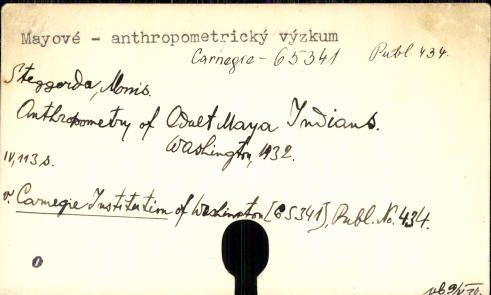 Mayové - anthropometrický výzkum
Carnegie - 65341 Publ. 434.
Steggerda, Morris.
Anthropometry of Adult Maya Indians.
Washington, 1932.
IV, 113 s.
v. Carnegie Institution of Washington [65341], Publ. No. 434.